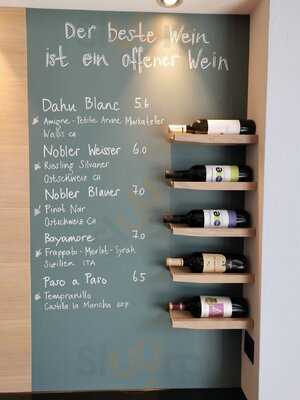 Der beste Wein
ist ein offener Wein
Dahu Blanc 5.6
Amigne - Petite Arvine Muskateller
Wallis CH
Nobler Weisser 6.0
Riesling Silvaner
Ostschweiz CH
Nobler Blauer 7.0
Pinot Nar
Ostschweiz CH
Bayamore 7.0
Frappato - Merlot - Syrah
Sizilien ITA
Paso a Paso 6.5
Tempranillo
Castilla la Mancha ESP